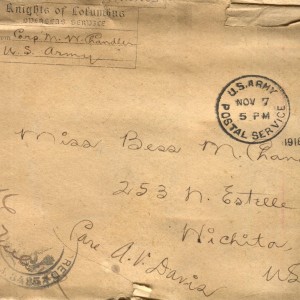 Knights of Columbus
OVERSEAS SERVICE
FROM Corp M. W. Chandler
U S Army
U.S. ARMY
NOV 7
5 PM
POSTAL SERVICE
191
Miss Bess M. Chan
253 N. Estelle
Wichita
Care A. V. Davis
US